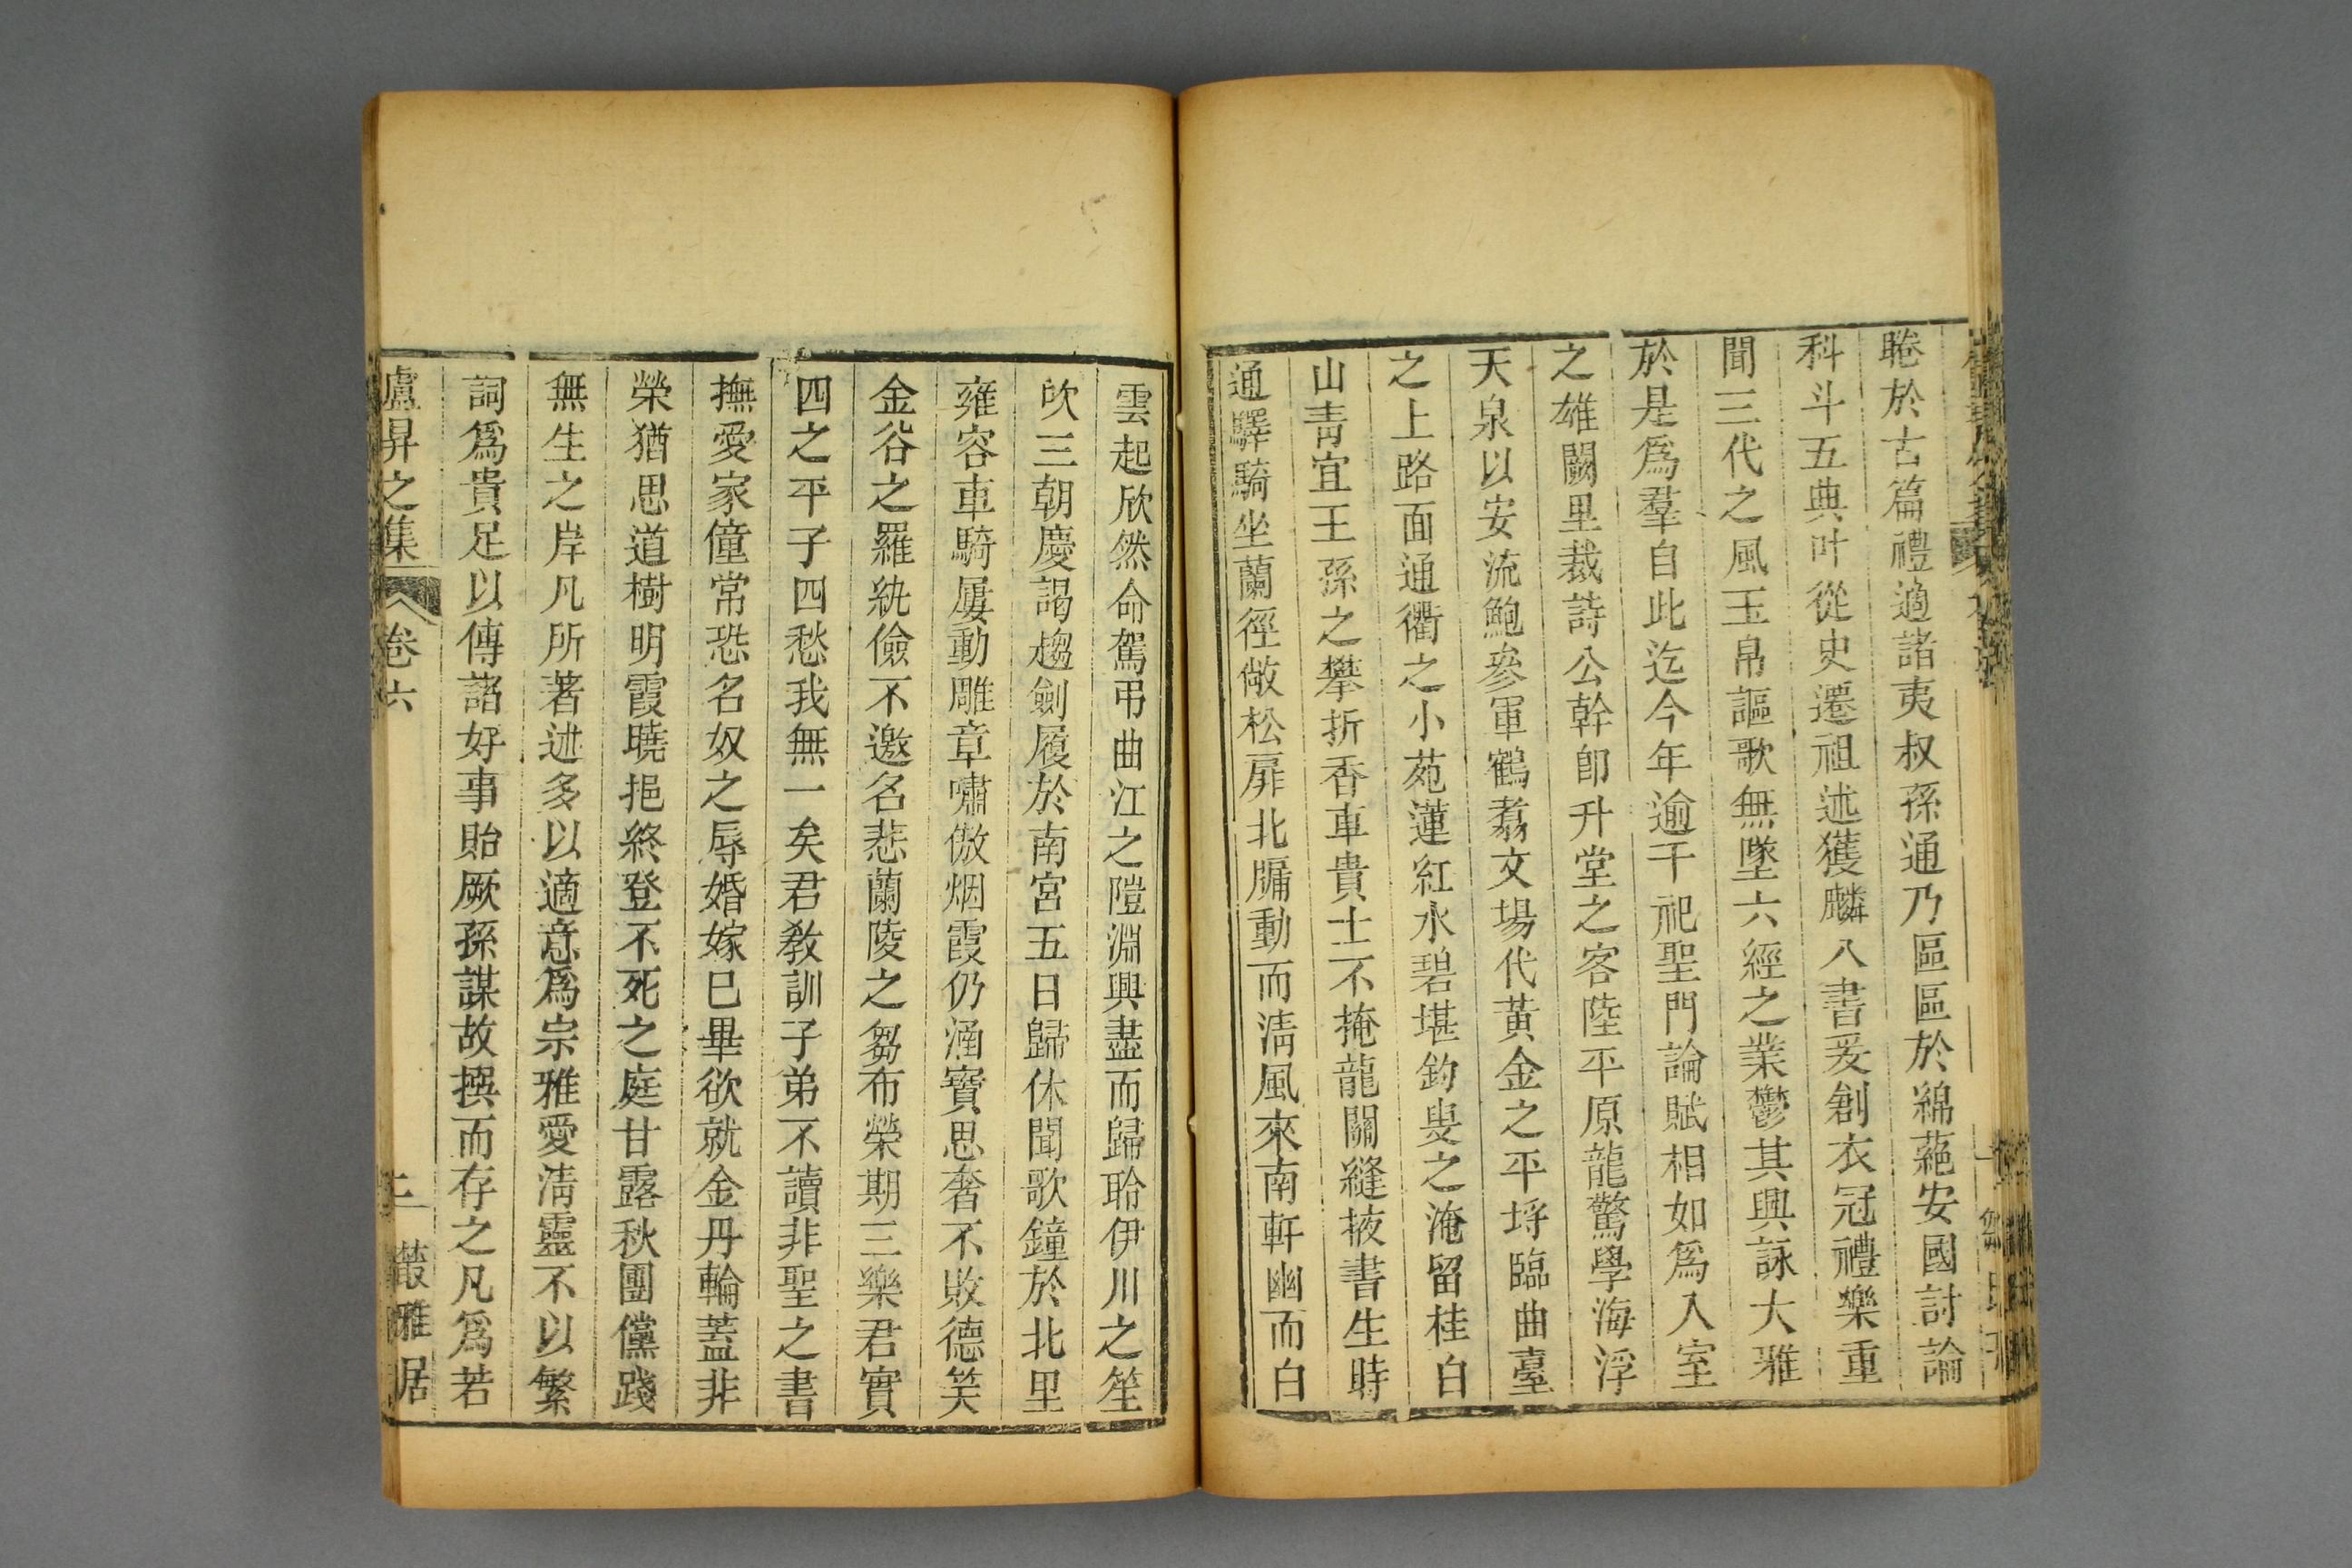 睠於古篇禮適諸夷叔孫通乃區區於綿蕝安國討論
科斗五典叶從史遷祖述獲麟八書爰創衣冠禮樂重
聞三代之風玉帛謳歌無墜六經之業鬱其興詠大雅
於是爲羣自此迄今年逾千祀聖門論賦相如爲入室
之雄闕里裁詩公幹卽升堂之客陸平原龍驚學海浮
天泉以安流鮑參軍鶴翥文場代黃金之平埒臨曲臺
之上路面通衢之小苑蓮紅水碧堪釣叟之淹留桂白
山靑宜王孫之攀折香車貴士不掩龍關縫掖書生時
通驛騎坐蘭徑敞松扉北牖動而淸風來南軒幽而白
雲起欣然命駕弔曲江之隑淵興盡而歸聆伊川之笙
吹三朝慶謁趨劍履於南宮五日歸休聞歌鐘於北里
雍容車騎屢動雕章嘯傲烟霞仍涵寶思奢不敗德笑
金谷之羅紈儉不邀名悲蘭陵之芻布榮期三樂君實
四之平子四愁我無一矣君教訓子弟不讀非聖之書
撫愛家僮常恐名奴之辱婚嫁巳畢欲就金丹輪蓋非
榮猶思道樹明霞曉挹終登不死之庭甘露秋團儻踐
無生之岸凡所著述多以適意爲宗雅愛淸靈不以繁
詞爲貴足以傳諸好事貽厥孫謀故撰而存之凡爲若
盧昇之集 卷六 三 叢雅居